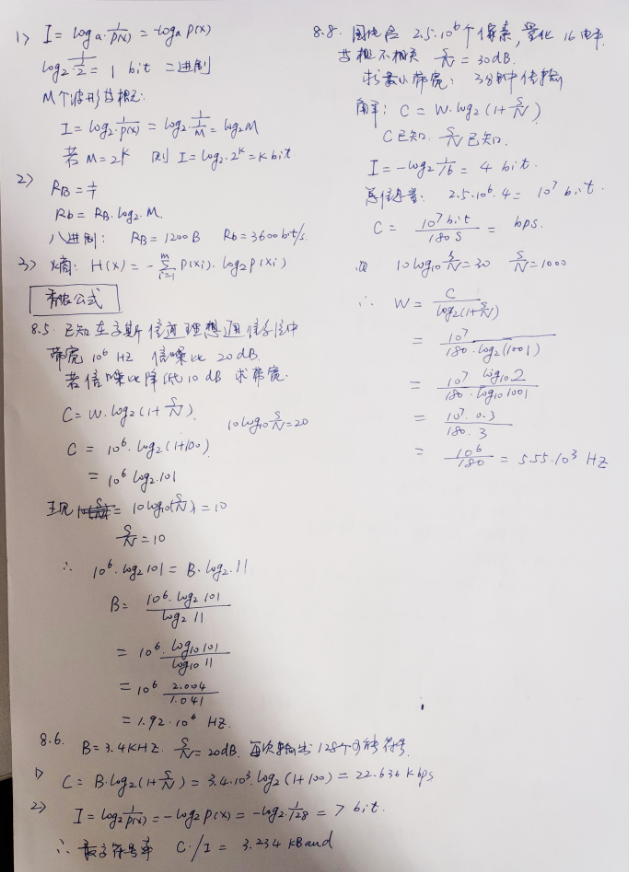 1> I = log_a 1/P(x) = -log_a P(x)
log₂ 1/(1/2) = 1 bit 二进制
M个波形等概:
I = log₂ 1/P(x) = log₂ 1/(1/M) = log₂M
若 M = 2^K 则 I = log₂ 2^K = K bit
2> R_B = 1/T
Rb = R_B · log₂ M.
八进制: R_B = 1200B Rb = 3600 bit/s
3> 熵: H(x) = -Σ_{i=1}^{m} P(xi) · log₂ P(xi)
香农公式
8.5. 已知在高斯信道理想通信系统中
带宽 10⁶ HZ 信噪比 20dB
若信噪比降低10dB 求带宽.
C = W · log₂ (1+ S/N) 10log₁₀ S/N = 20
C = 10⁶ · log₂ (1+100)
= 10⁶ log₂ 101
10log₁₀(S/N) = 10
S/N = 10
∴ 10⁶ · log₂ 101 = B · log₂ 11
B = 10⁶ · log₂ 101 / log₂ 11
= 10⁶ · log₁₀ 101 / log₁₀ 11
= 10⁶ 2.004 / 1.041
= 1.92 · 10⁶ HZ.
8.6. B = 3.4KHZ. S/N = 20dB. 每次输出 128个可能符号.
1> C = B · log₂ (1+ S/N) = 3.4 · 10³ · log₂ (1+100) = 22.636 kbps
2> I = log₂ 1/P(x) = -log₂ P(x) = -log₂ 1/128 = 7 bit.
∴ 符号率 C / I = 3.234 kBaud
8.8. 图片含 2.5·10⁶个像素, 量化 16电平.
等概不相关 S/N = 30dB.
求最小带宽: 3分钟传输
解: C = W · log₂ (1+ S/N)
C已知. S/N 已知.
I = -log₂ 1/16 = 4 bit.
总信息量: 2.5 · 10⁶ · 4 = 10⁷ bit.
C = 10⁷ bit / 180 S = bps.
10 log₁₀ S/N = 30 S/N = 1000
∴ W = C / log₂(1+ S/N)
= 10⁷ / 180 · log₂ (1001)
= 10⁷ log₁₀ 2 / 180 · log₁₀ 1001
= 10⁷ · 0.3 / 180 · 3
= 10⁶ / 180 = 5.55 · 10³ HZ